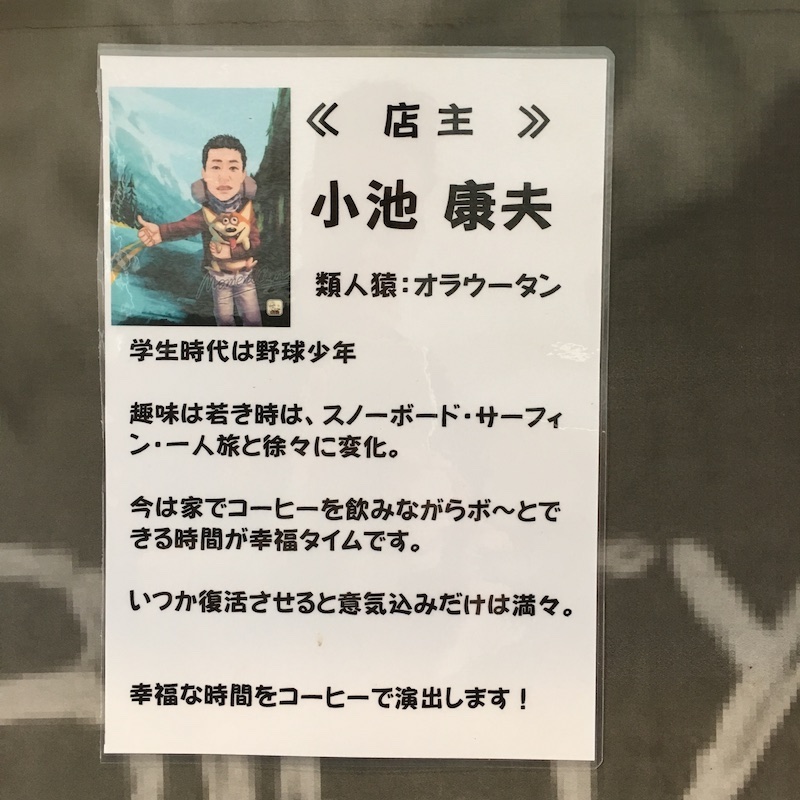 ≪ 店主 ≫
小池 康夫
類人猿：オラウータン
学生時代は野球少年
趣味は若き時は、スノーボード・サーフィ
ン・一人旅と徐々に変化。
今は家でコーヒーを飲みながらボ～とで
きる時間が幸福タイムです。
いつか復活させると意気込みだけは満々。
幸福な時間をコーヒーで演出します！